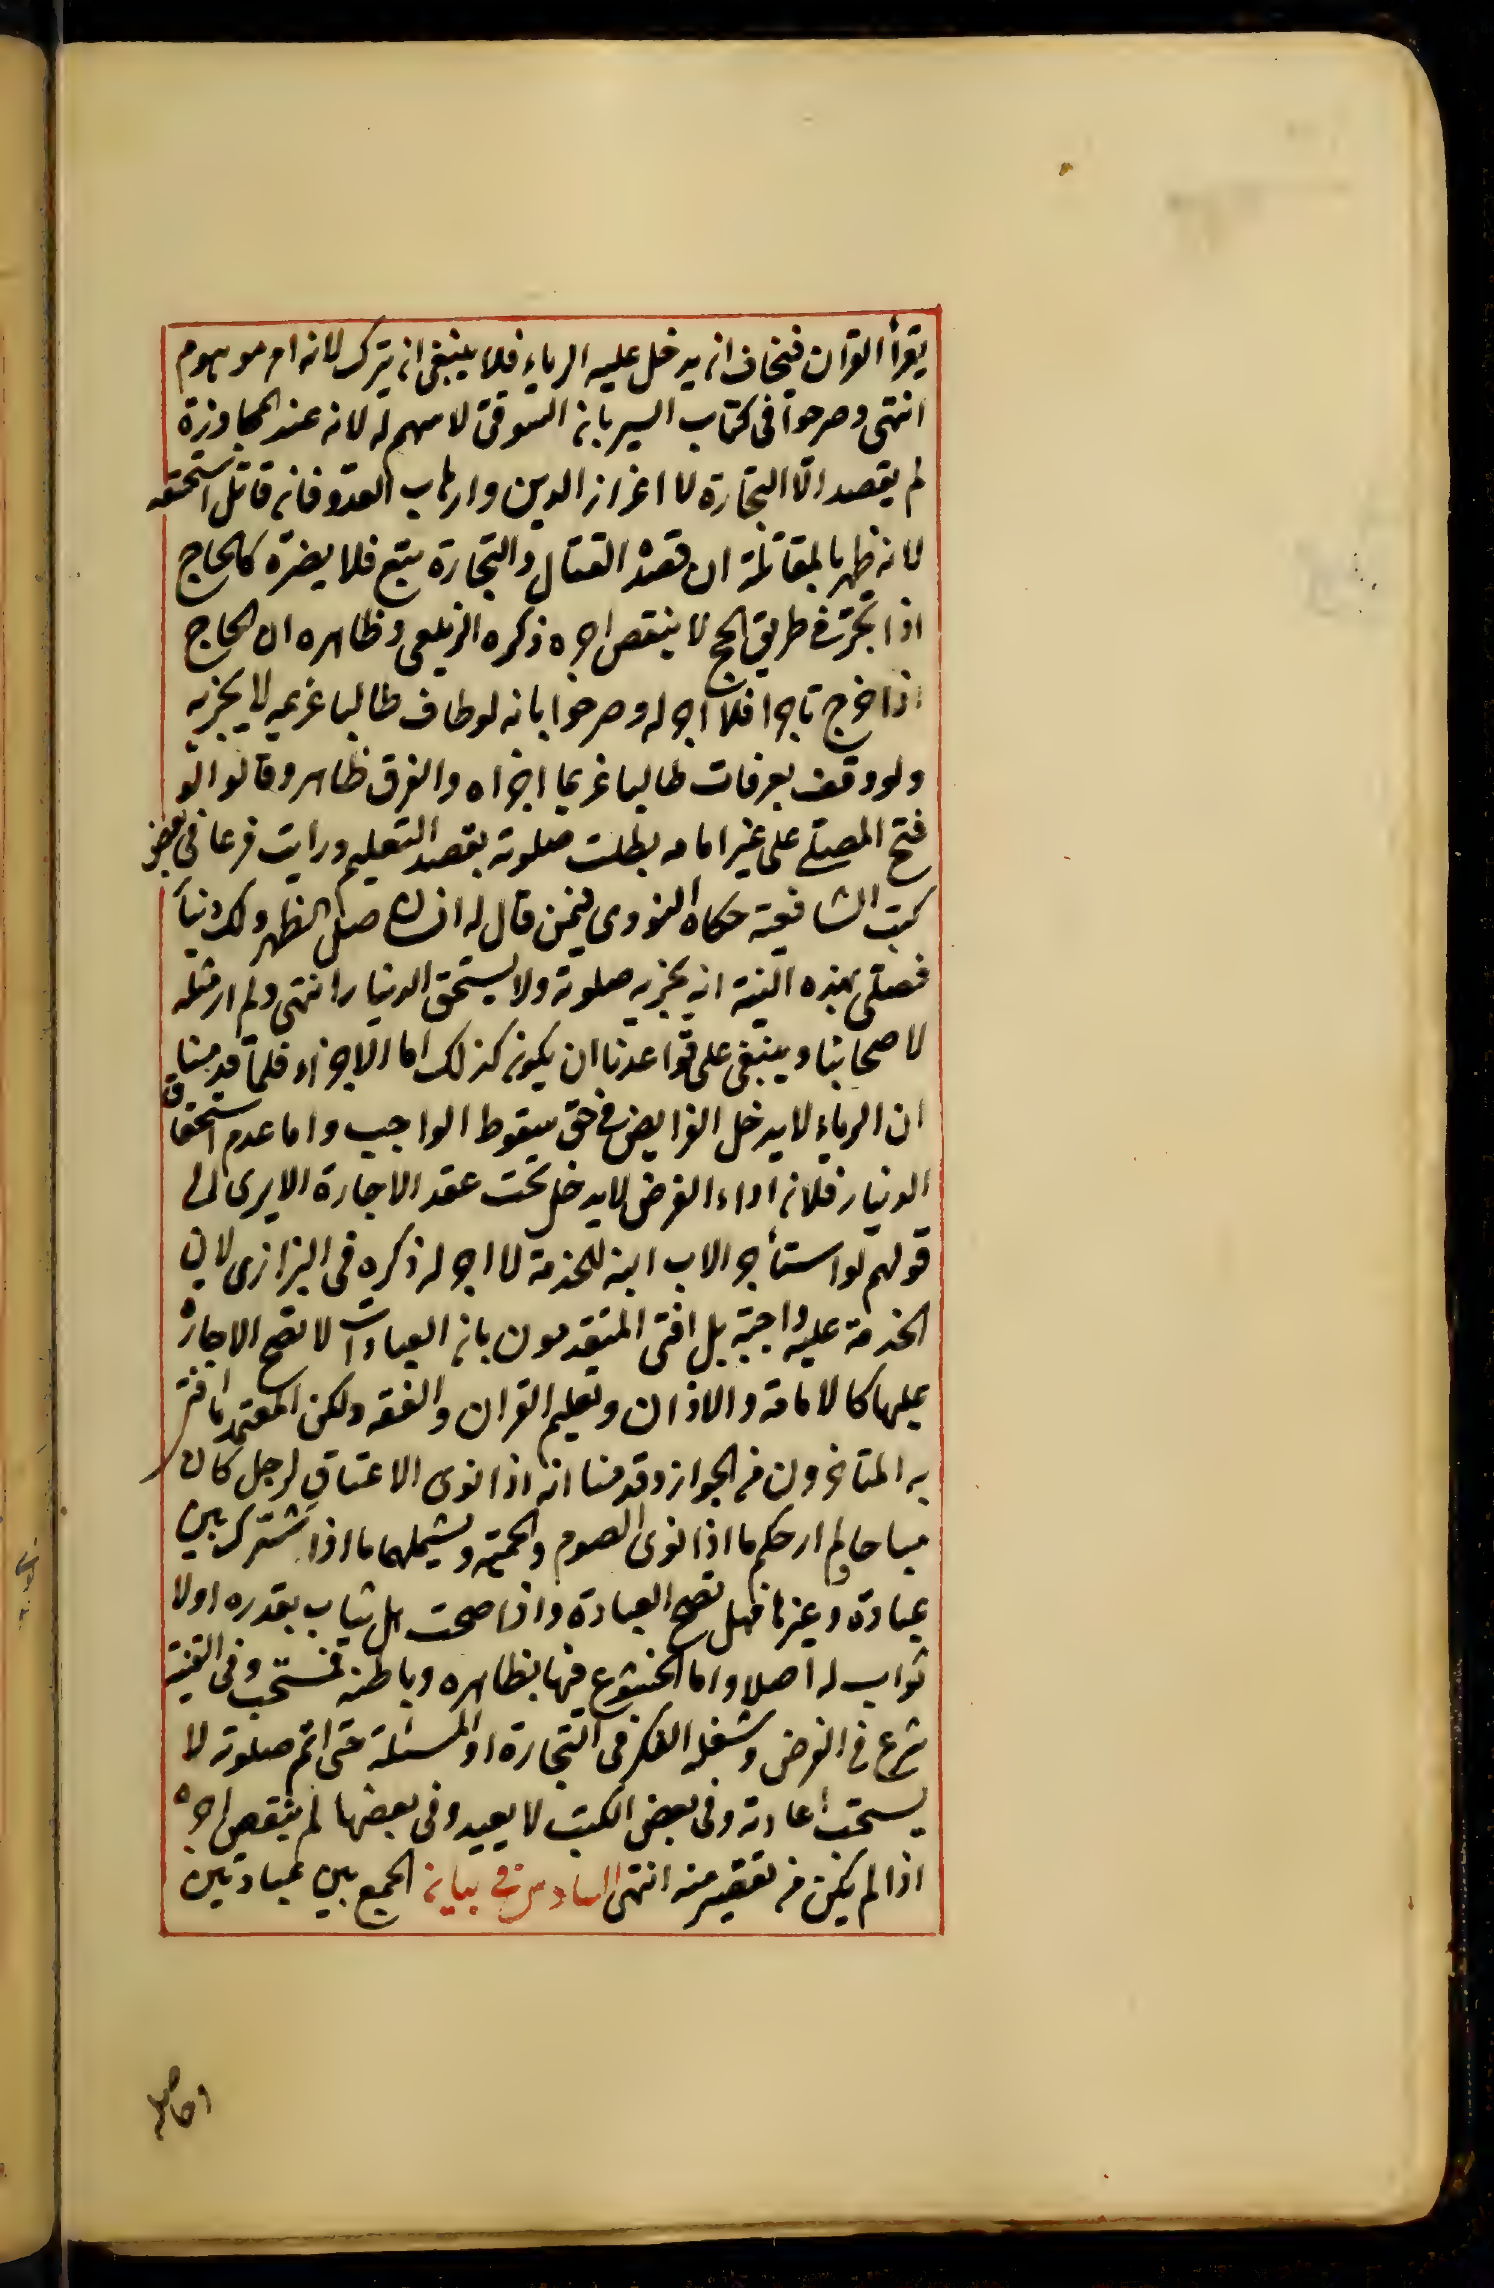 يقرأ القرآن فيخاف ان يدخل عليه الرياء فلا ينبغى ان يترك لانه امر موهوم
انتهى وصرحوا فى كتاب السير بان السوقى لا سهم له لانه عند المجاوزة
لم يقصد الّا التجارة لا اعزاز الدين وارهاب العدوّ فان قاتل استحقه
لانه ظهر بالمقاتلة ان قصده القتال والتجارة تبع فلا يضره كالحاج
اذا تجر فى طريق الحج لا ينقص اجره ذكره الزيلعى وظاهره ان الحاج
اذا خرج تاجرا فلا اجر له وصرحوا بانه لو طاف طالبا غريمه لا يجزيه
ولو وقف بعرفات طالبا غريما اجزاه والفرق ظاهر وقالوا لو
فتح المصلى على غير امامه بطلت صلوته بقصد التعليم ورايت فرعا فى بعض
كتب الشافعية حكاه النووى فيمن قال له انسان صلّ الظهر ولك دينار
فصلى بهذه النية انه يجزيه صلوته ولا يستحق الدينار انتهى ولم ار مثله
لاصحابنا وينبغى على قواعدنا ان يكون كذلك اما الاجزاء فلما قدمنا
ان الرياء لا يدخل الفرايض فى حق سقوط الواجب واما عدم استحقاق
الدينار فلان اداء الفرض لا يدخل تحت عقد الاجارة الا يرى الى
قولهم لو استأجر الاب ابنه للخدمة لا اجر له ذكره فى البزازى لان
الخدمة عليه واجبة بل افتى المتقدمون بان العبادات لا تصح الاجارة
عليها كالامامة والاذان وتعليم القران والفقه ولكن المعتمد ما افتى
به المتاخرون من الجواز وقدمنا انه اذا نوى الاعتاق لرجل كان
مباحا ولم ار حكم ما اذا نوى الصوم والحمية ويشملهما ما اذا اشترك بين
عبادة وغيرها فهل تصح العبادة واذا صحت هل يثاب بقدره اولا
ثواب له اصلا واما الخشوع فيها بظاهره وباطنه فمستحب وفى القنية
شرع فى الفرض وشغله الفكر فى التجارة او المسئلة حتى اتم صلوته لا
يستحب اعادته وفى بعض الكتب لا يعيد وفى بعضها لم ينقص اجره
اذا لم يكن من تقصير منه انتهى السادس فى بيان الجمع بين عبادتين